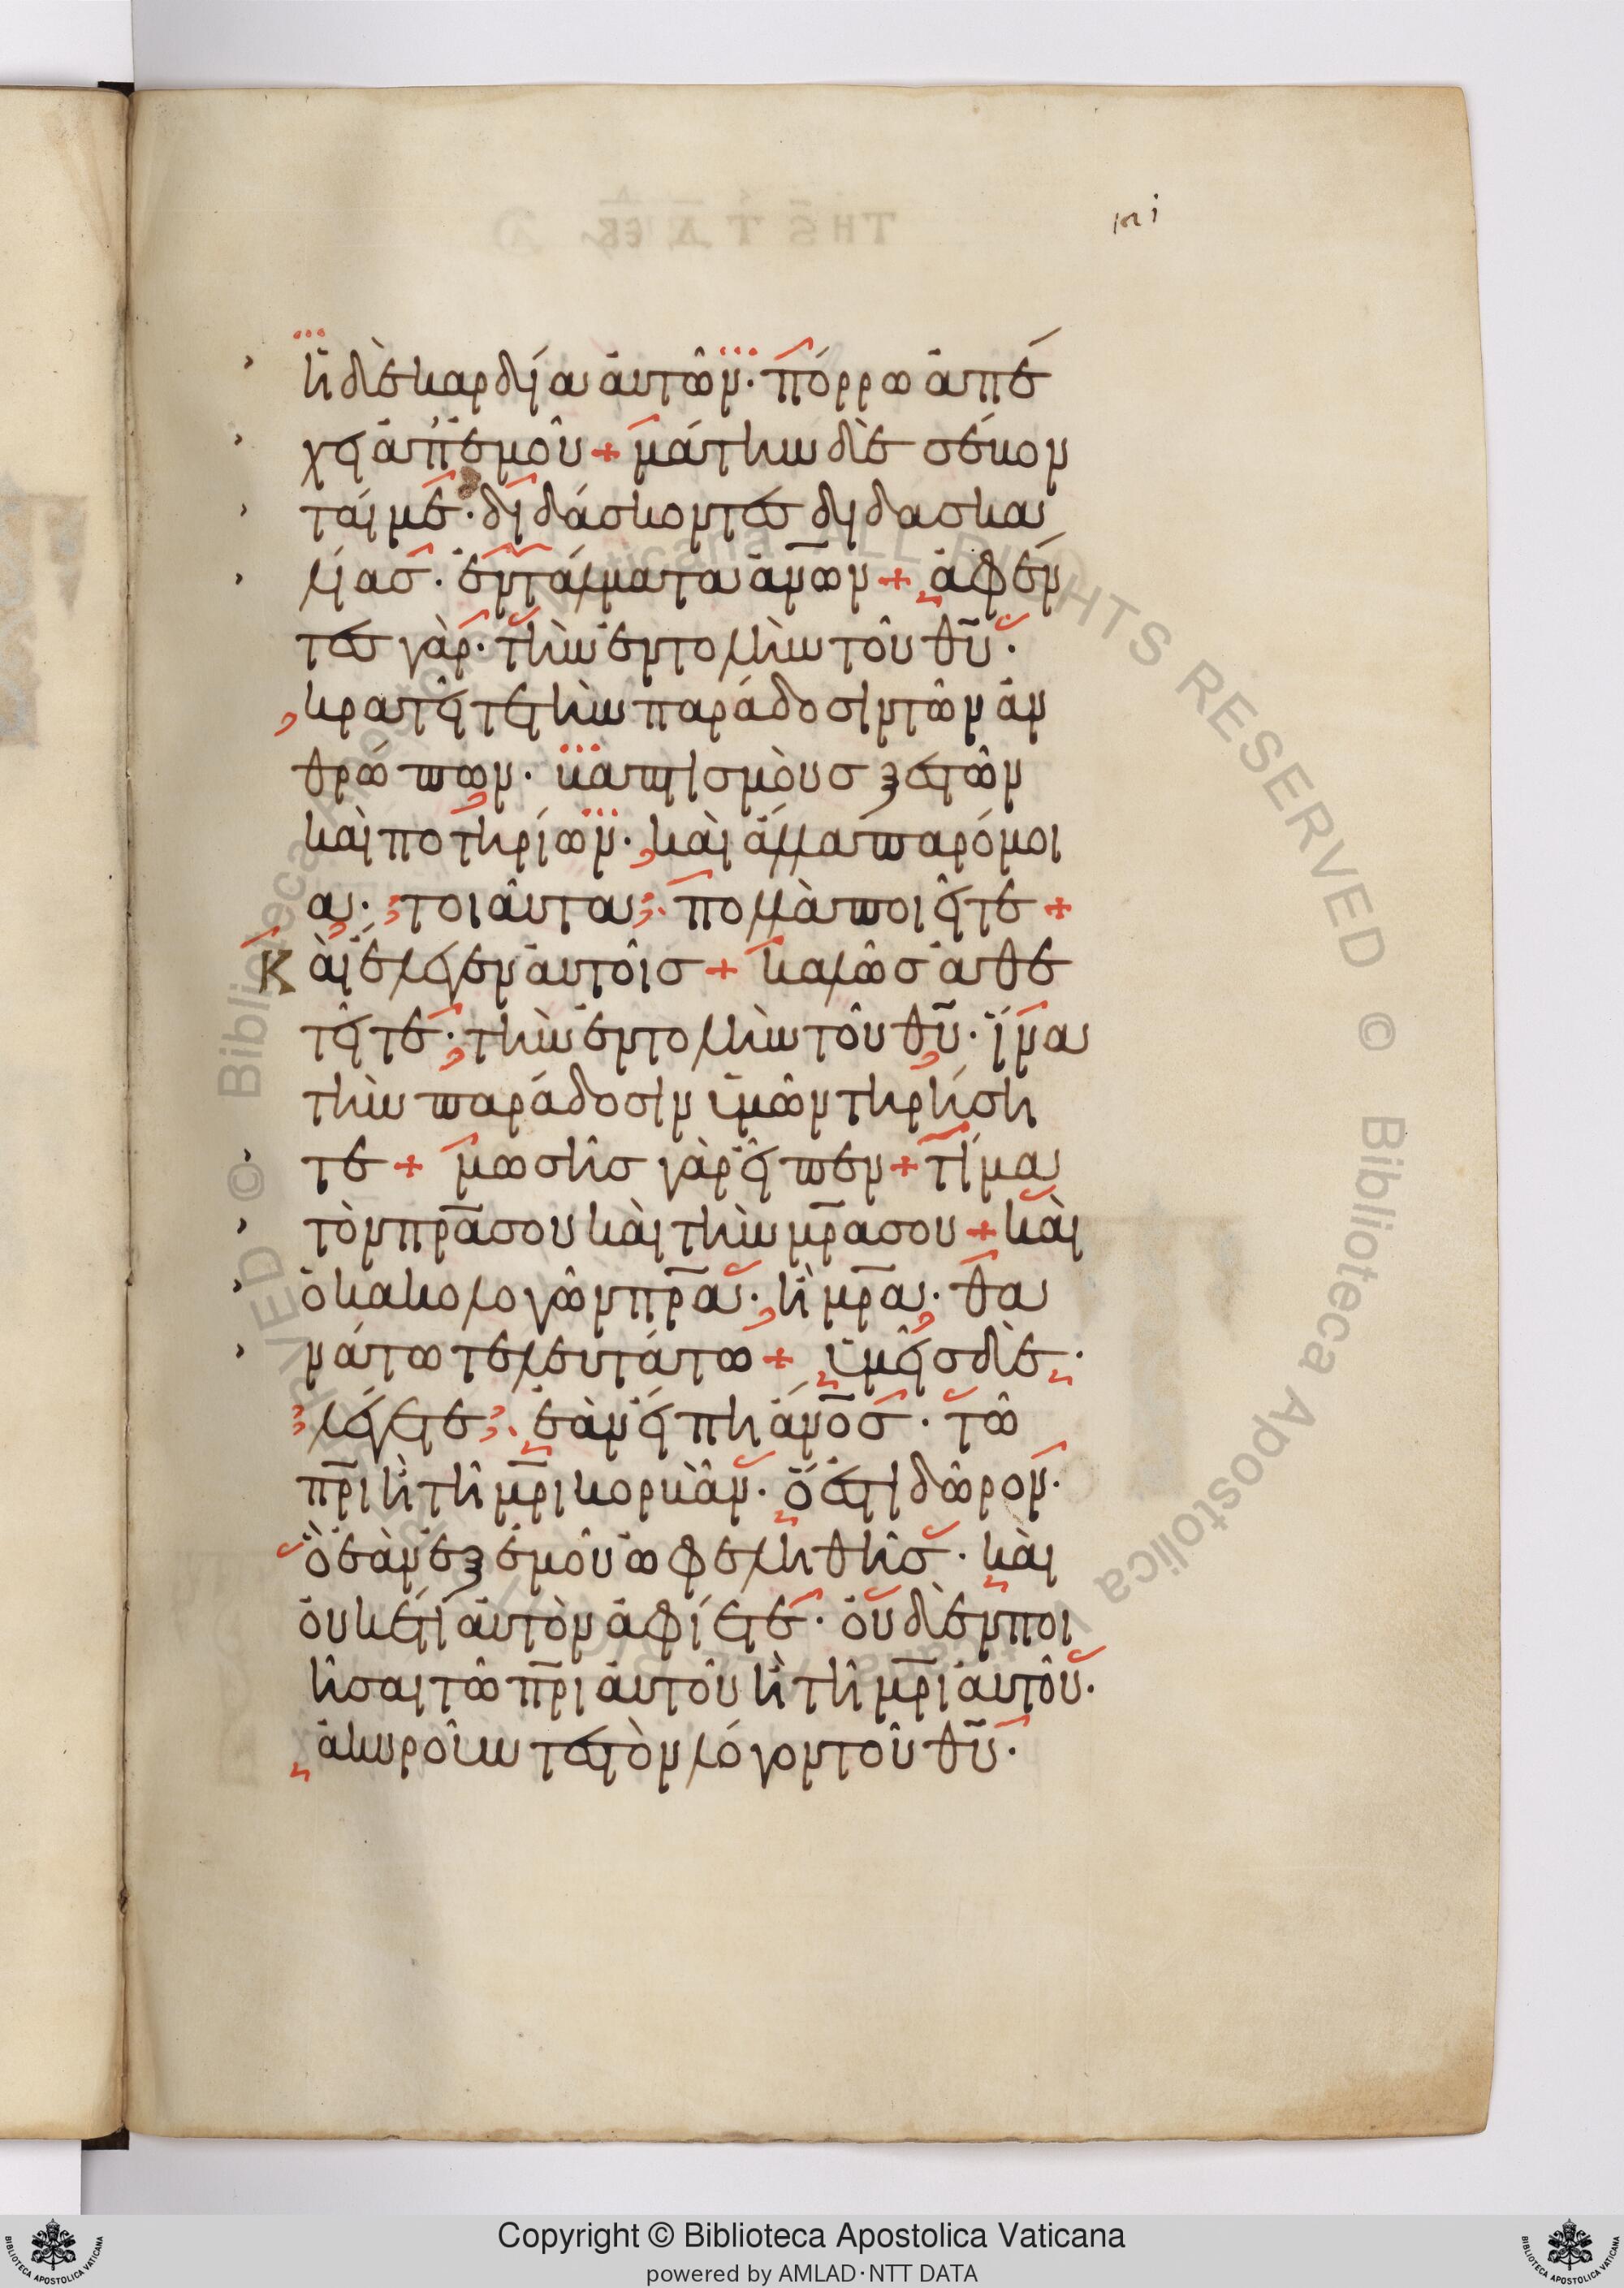 ἡ δὲ καρδία αὐτῶν· πόρρω ἀπέ
χει ἀπ' ἐμοῦ + μάτην δὲ σέβον
ταί με· διδάσκοντες διδασκα
λίας· ἐντάλματα ἀν̅ων + ἀφέν
τες γὰρ· τὴν ἐντολὴν τοῦ θ̅υ·
κρατεῖτε τὴν παράδοσιν τῶν ἀν
θρώπων· βαπτισμοὺς ξεστῶν
καὶ ποτηρίων· καὶ ἄλλα παρόμοι
α· τοιαῦτα· πολλὰ ποιεῖτε +
Καὶ ἔλεγεν αὐτοῖς + καλῶς ἀθε
τεῖτε· τὴν ἐντολὴν τοῦ θ̅υ· ἵνα
τὴν παράδοσιν ὑμῶν τηρήση
τε + μωσῆς γὰρ εἶπεν + τίμα
τὸν π̅ρ̅α σου καὶ τὴν μ̅ρ̅α σου + καὶ
ὁ κακολογῶν π̅ρ̅α· ἢ μ̅ρ̅α· θα
νάτω τελευτάτω + ὑμεῖς δὲ·
λέγετε· ἐὰν εἴπη ἀν̅ος· τῶ
π̅ρ̅ι ἢ τῆ μ̅ρ̅ι κορβᾶν· ὅ ἐστι δῶρον·
ὃ ἐὰν ἐξ ἐμοῦ ὠφεληθῆς· καὶ
οὐκέτι αὐτὸν ἀφίετε· οὐδὲν ποι
ῆσαι τῶ π̅ρ̅ι αὐτοῦ ἢ τῆ μ̅ρ̅ι αὐτοῦ·
ἀκυροῦντες τὸν λόγον τοῦ θ̅υ·
Biblioteca Apostolica Vaticana ALL RIGHTS RESERVED ©
Copyright © Biblioteca Apostolica Vaticana
powered by AMLAD·NTT DATA
BIBLIOTECA APOSTOLICA VATICANA
BIBLIOTECA APOSTOLICA VATICANA